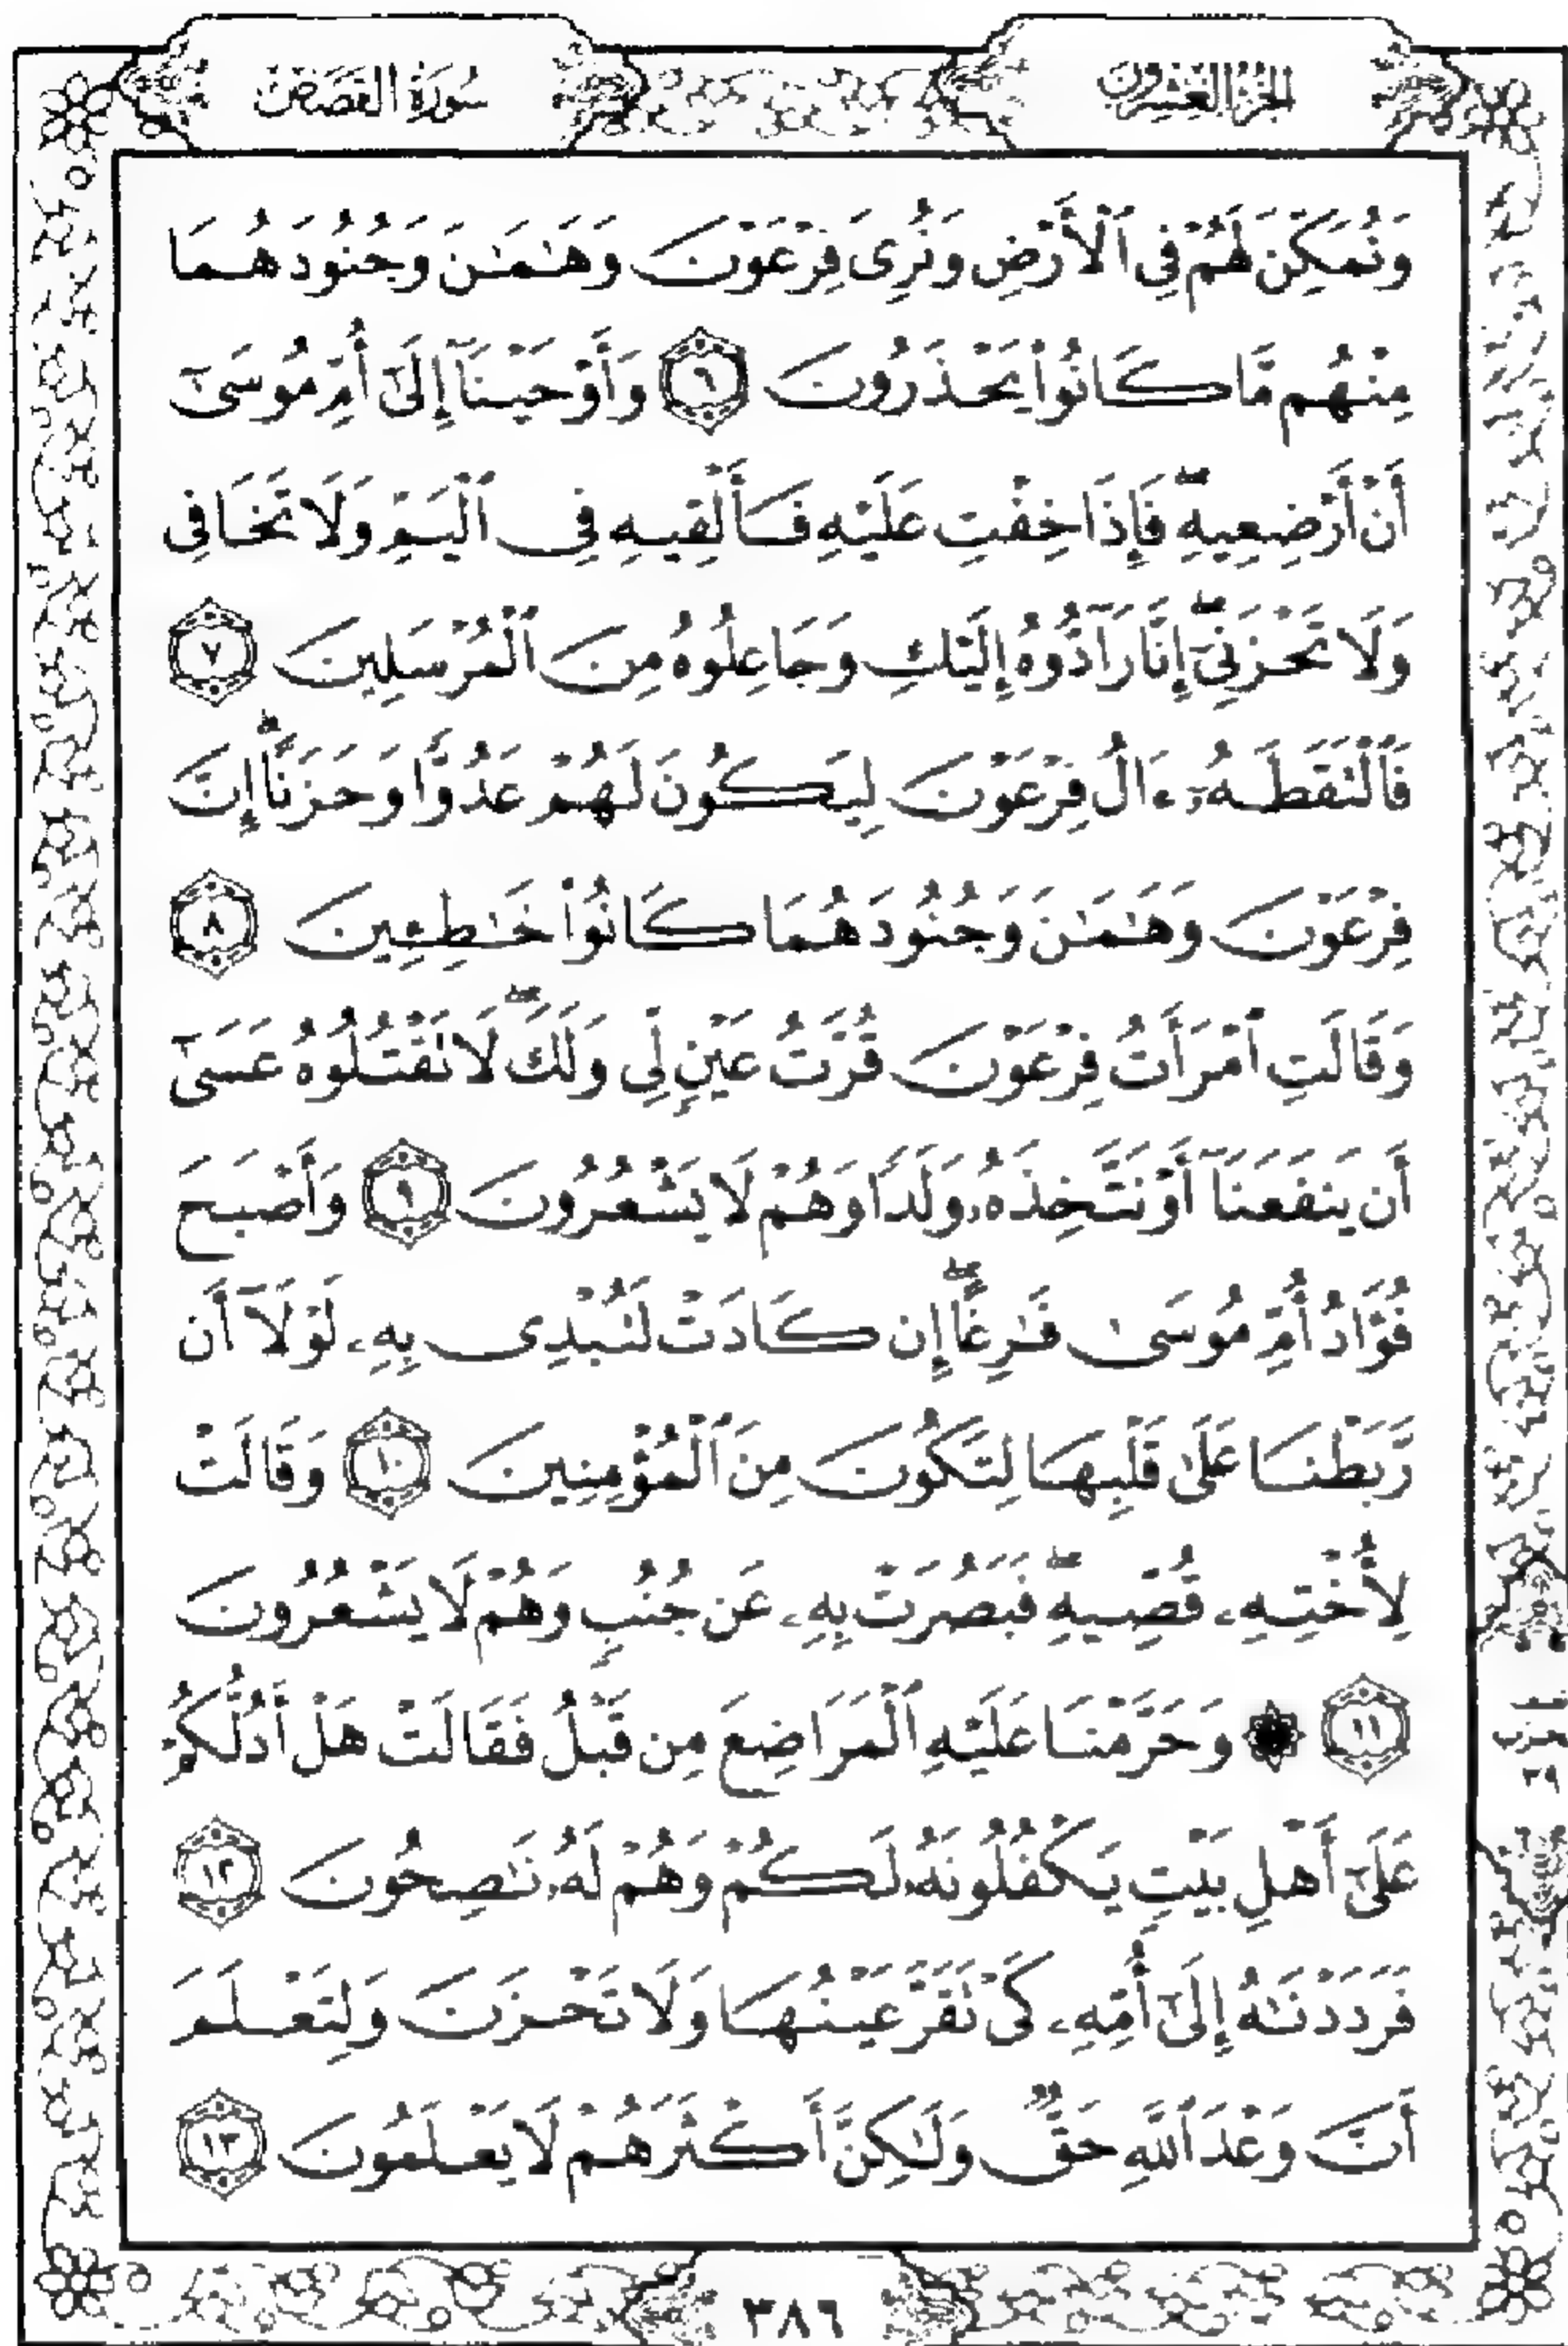 الجزء العشرون
سورة القصص
وَنُمَكِّنَ لَهُمْ فِي ٱلْأَرْضِ وَنُرِىَ فِرْعَوْنَ وَهَٰمَٰنَ وَجُنُودَهُمَا
مِنْهُم مَّا كَانُوا۟ يَحْذَرُونَ ٦ وَأَوْحَيْنَآ إِلَىٰٓ أُمِّ مُوسَىٰٓ
أَنْ أَرْضِعِيهِ ۖ فَإِذَا خِفْتِ عَلَيْهِ فَأَلْقِيهِ فِى ٱلْيَمِّ وَلَا تَخَافِى
وَلَا تَحْزَنِىٓ ۖ إِنَّا رَآدُّوهُ إِلَيْكِ وَجَاعِلُوهُ مِنَ ٱلْمُرْسَلِينَ ٧
فَٱلْتَقَطَهُۥٓ ءَالُ فِرْعَوْنَ لِيَكُونَ لَهُمْ عَدُوًّا وَحَزَنًا ۗ إِنَّ
فِرْعَوْنَ وَهَٰمَٰنَ وَجُنُودَهُمَا كَانُوا۟ خَٰطِـِٔينَ ٨
وَقَالَتِ ٱمْرَأَتُ فِرْعَوْنَ قُرَّتُ عَيْنٍ لِّى وَلَكَ ۖ لَا تَقْتُلُوهُ عَسَىٰٓ
أَن يَنفَعَنَآ أَوْ نَتَّخِذَهُۥ وَلَدًا وَهُمْ لَا يَشْعُرُونَ ٩ وَأَصْبَحَ
فُؤَادُ أُمِّ مُوسَىٰ فَٰرِغًا ۖ إِن كَادَتْ لَتُبْدِى بِهِۦ لَوْلَآ أَن
رَّبَطْنَا عَلَىٰ قَلْبِهَا لِتَكُونَ مِنَ ٱلْمُؤْمِنِينَ ١٠ وَقَالَتْ
لِأُخْتِهِۦ قُصِّيهِ ۖ فَبَصُرَتْ بِهِۦ عَن جُنُبٍ وَهُمْ لَا يَشْعُرُونَ
١١ ۞ وَحَرَّمْنَا عَلَيْهِ ٱلْمَرَاضِعَ مِن قَبْلُ فَقَالَتْ هَلْ أَدُلُّكُمْ
عَلَىٰٓ أَهْلِ بَيْتٍ يَكْفُلُونَهُۥ لَكُمْ وَهُمْ لَهُۥ نَٰصِحُونَ ١٢
فَرَدَدْنَٰهُ إِلَىٰٓ أُمِّهِۦ كَىْ تَقَرَّ عَيْنُهَا وَلَا تَحْزَنَ وَلِتَعْلَمَ
أَنَّ وَعْدَ ٱللَّهِ حَقٌّ وَلَٰكِنَّ أَكْثَرَهُمْ لَا يَعْلَمُونَ ١٣
٣٨٦